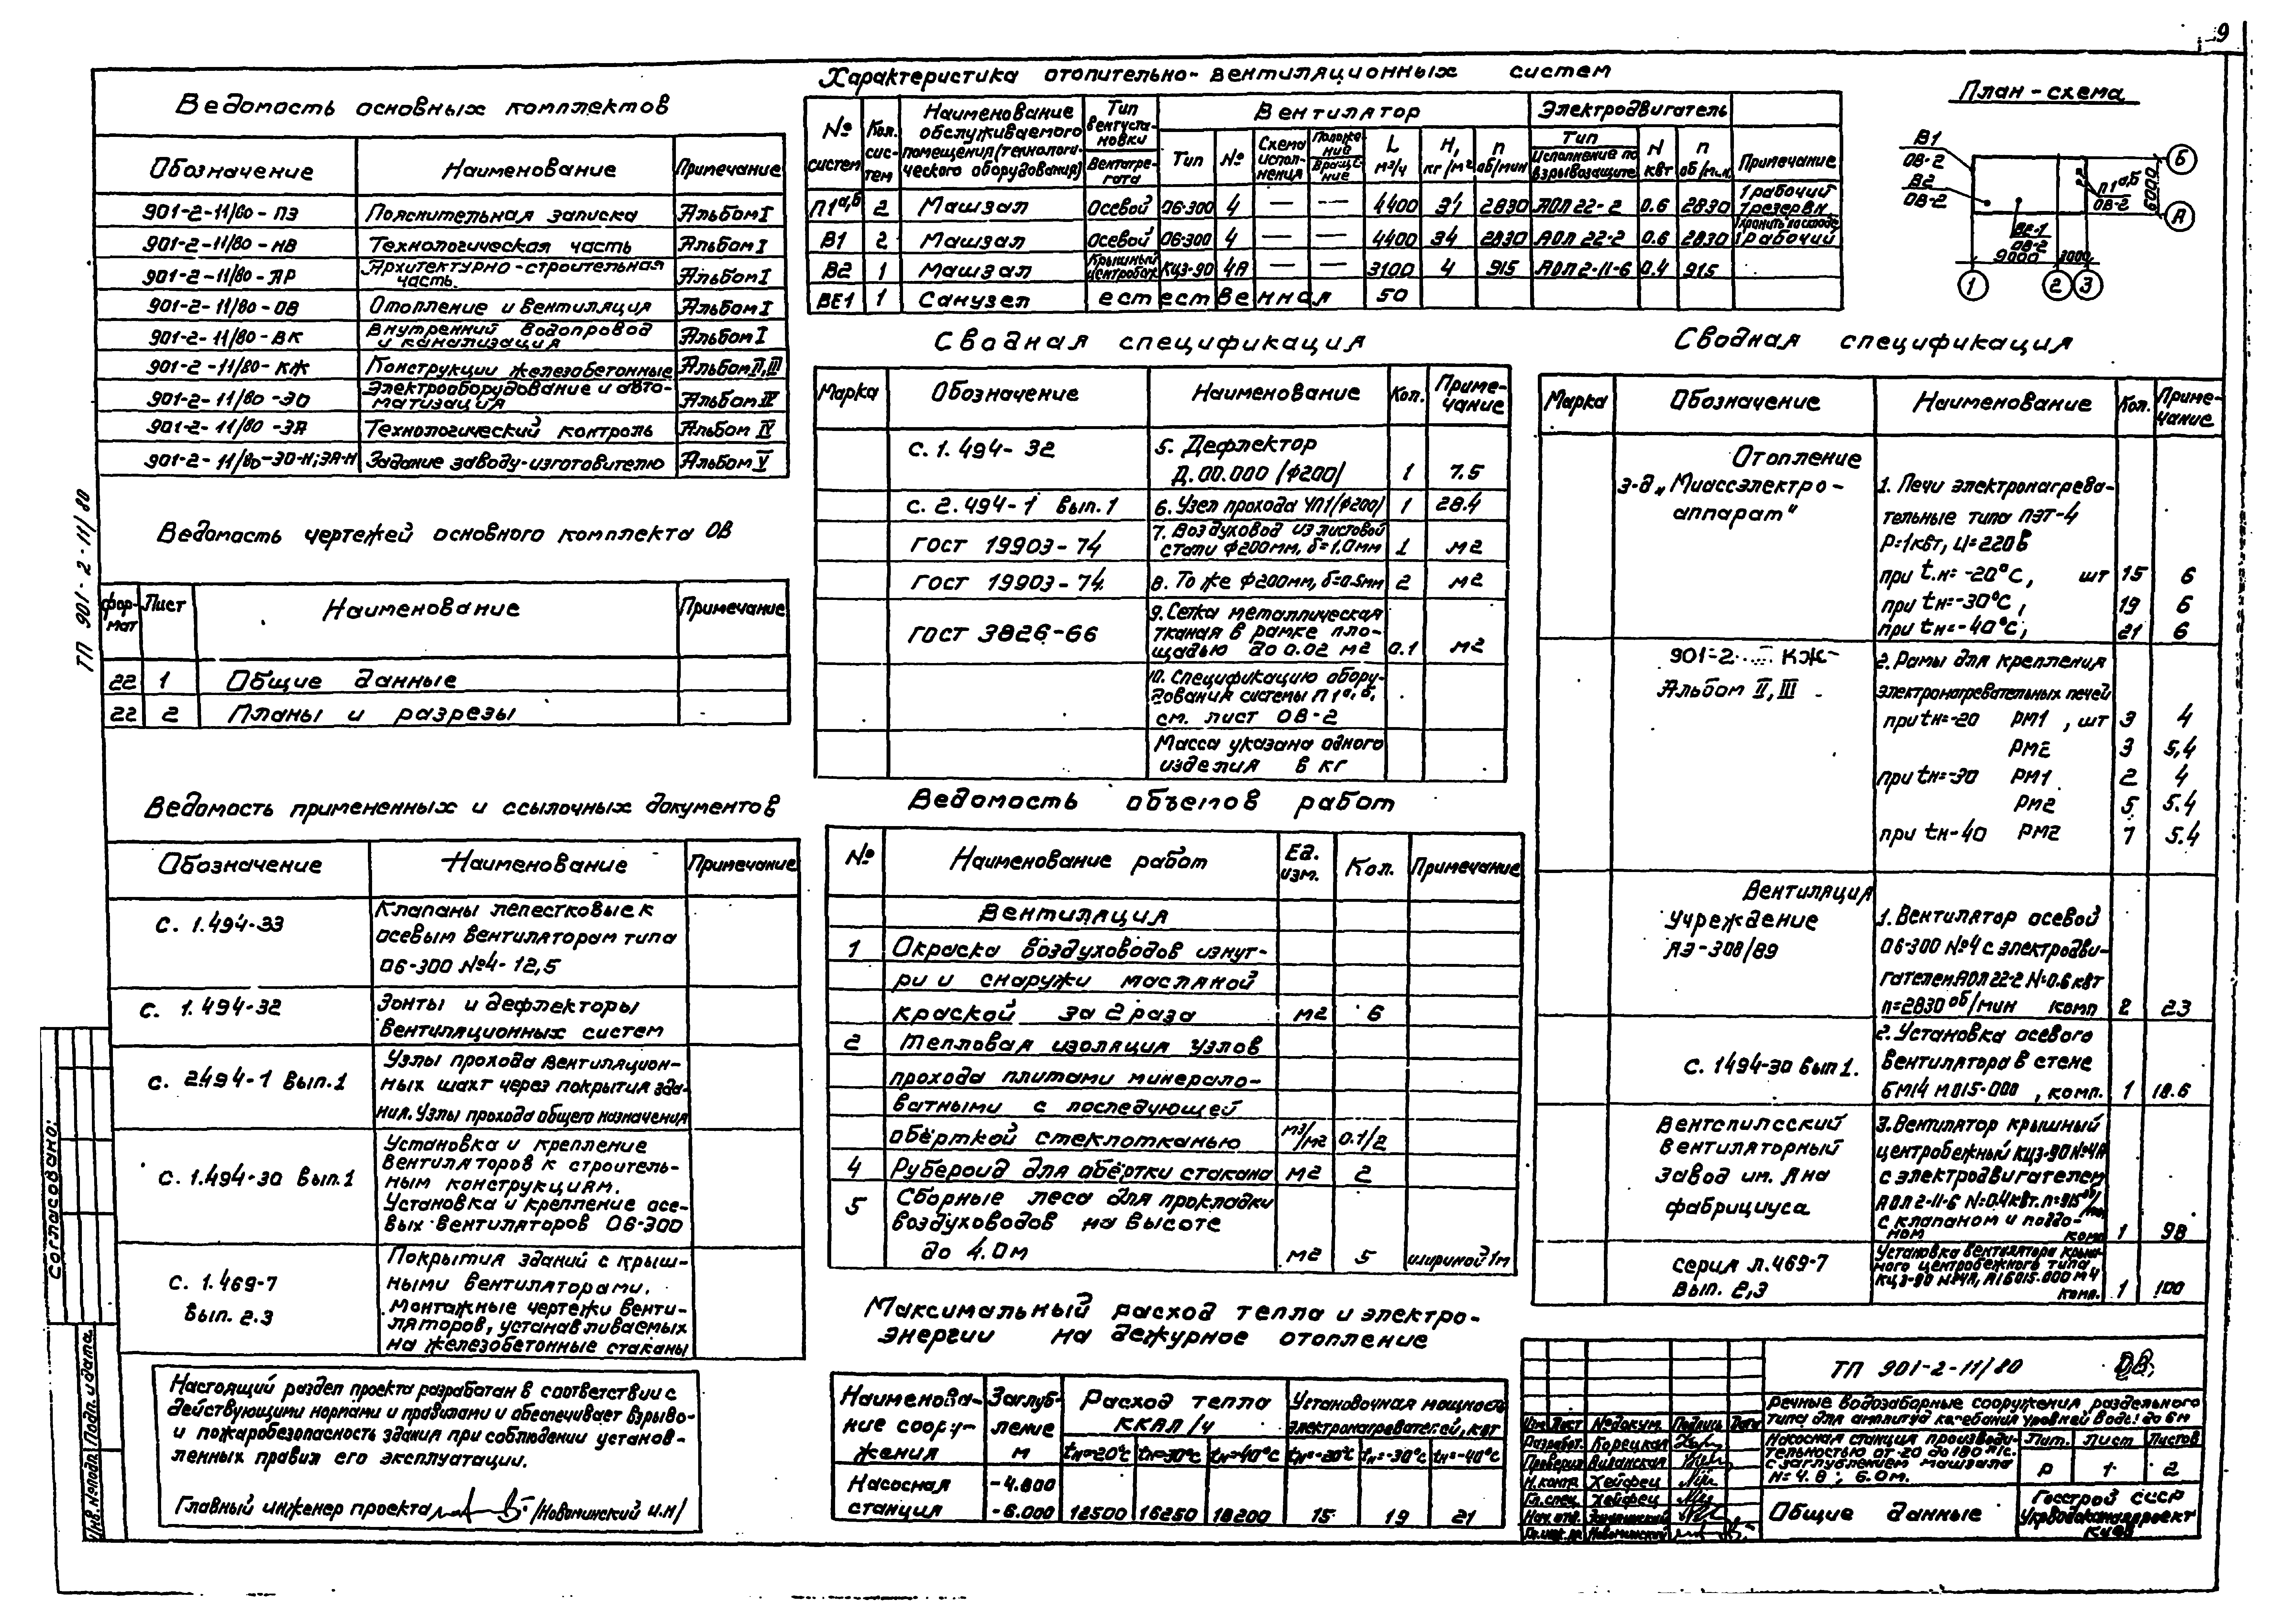 9
Ведомость основных комплектов
Обозначение Наименование Примечание
901-2-11/80-ПЗ Пояснительная записка Альбом I
901-2-11/80-НВ Технологическая часть Альбом I
901-2-11/80-АР Архитектурно-строительная часть. Альбом I
901-2-11/80-ОВ Отопление и вентиляция Альбом I
901-2-11/80-ВК Внутренний водопровод и канализация Альбом I
901-2-11/80-КЖ Конструкции железобетонные Альбом II, III
901-2-11/80-ЭО Электрооборудование и автоматизация Альбом IV
901-2-11/80-ЭА Технологический контроль Альбом IV
901-2-11/80-ЭО-Н; ЭА-Н Задание заводу-изготовителю Альбом V
ТП 901-2-11/80
Ведомость чертежей основного комплекта ОВ
Формат Лист Наименование Примечание
22 1 Общие данные
22 2 Планы и разрезы
Ведомость примененных и ссылочных документов
Обозначение Наименование Примечание
с. 1.494-33 Клапаны лепестковые к
осевым вентиляторам типа
06-300 №4-12,5
с. 1.494-32 Зонты и дефлекторы
вентиляционных систем
с. 2494-1 вып.1 Узлы прохода вентиляцион-
ных шахт через покрытия зда-
ния. Узлы прохода общего назначения
с. 1.494-30 вып.1 Установка и крепление
вентиляторов к строитель-
ным конструкциям.
Установка и крепление осе-
вых вентиляторов 06-300
с. 1.469-7 вып. 2.3 Покрытия зданий с крыш-
ными вентиляторами.
Монтажные чертежи венти-
ляторов, устанавливаемых
на железобетонные стаканы
Настоящий раздел проекта разработан в соответствии с
действующими нормами и правилами и обеспечивает взрыво-
и пожаробезопасность здания при соблюдении установ-
ленных правил его эксплуатации.
Главный инженер проекта /Новоминский И.М/
Согласовано:
Инв. № подл. Подп. и дата.
Характеристика отопительно-вентиляционных систем
№ систем Кол. систем Наименование обслуживаемого помещения (технологического оборудования) Тип вентустановки Вентагрегата Вентилятор Электродвигатель
Тип № Схема исполнения Положение Вращение L м³/ч H, кг/м² n об/мин Тип Исполнение по взрывозащите N квт n об/мин. Примечание
П1а,б 2 Машзал Осевой 06-300 4 — — 4400 34 2830 АОЛ 22-2 0.6 2830 1 рабочий 1 резервн. хранить на складе
В1 2 Машзал Осевой 06-300 4 — — 4400 34 2830 АОЛ 22-2 0.6 2830 1 рабочий
В2 1 Машзал Крышный центробеж КЦ3-90 4А — — 3100 4 915 АОЛ 2-11-6 0.4 915
ВЕ1 1 Санузел естественная 50
План-схема
В1
ОВ-2
В2
ОВ-2
П1а,б
ОВ-2
ВЕ-1
ОВ-2
6000
9000 3000
Б
А
1 2 3
Сводная спецификация
Марка Обозначение Наименование Кол. Примечание
с. 1.494-32 5. Дефлектор
Д.00.000 /Ф200/ 1 7.5
с. 2.494-1 вып.1 6. Узел прохода УП1/Ф200/ 1 28.4
ГОСТ 19903-74 7. Воздуховод из листовой
стали Ф200мм, δ=1.0мм 1 м2
ГОСТ 19903-74 8. То же Ф200мм, δ=0.5мм 2 м2
ГОСТ 3826-66 9. Сетка металлическая
тканая в рамке пло-
щадью до 0.02 м2 0.1 м2
10. Спецификацию обору-
дования системы П1а,б,
см. лист ОВ-2
Масса указана одного
изделия в кг
Ведомость объемов работ
№ Наименование работ Ед. изм. Кол. Примечание
Вентиляция
1 Окраска воздуховодов изнут-
ри и снаружи масляной
краской за 2 раза м2 6
2 Тепловая изоляция узлов
прохода плитами минерало-
ватными с последующей
обёрткой стеклотканью м3/м2 0.1/2
4 Рубероид для обёртки стакана м2 2
5 Сборные леса для прокладки
воздуховодов на высоте
до 4.0м м2 5 шириной 1м
Максимальный расход тепла и электро-
энергии на дежурное отопление
Наименование сооружения Заглубление м Расход тепла ККАЛ/ч Установочная мощность электронагревателей, квт
tн=-20°С tн=-30°С tн=-40°С tн=-20°С tн=-30°С tн=-40°С
Насосная станция -4.800
-6.000 12500 16250 18200 15 19 21
Сводная спецификация
Марка Обозначение Наименование Кол. Примечание
Отопление
з-д „Миассэлектро- 1. Печи электронагрева-
аппарат" тельные типа ПЭТ-4
Р=1квт, U=220в
при t.н=-20°С, шт 15 6
при tн=-30°С, 19 6
при tн=-40°С, 21 6
901-2-....КЖ- 2. Рамы для крепления
Альбом II, III электронагревательных печей
при tн=-20 РМ1, шт 3 4
РМ2 3 5,4
при tн=-30 РМ1 2 4
РМ2 5 5.4
при tн-40 РМ2 7 5.4
Вентиляция
Учреждение 1. Вентилятор осевой
ЯЭ-308/89 06-300 №4 с электродви-
гателем АОЛ 22-2 N=0.6 квт
n=2830 об/мин комп 2 23
2. Установка осевого
с. 1494-30 вып 1. вентилятора в стене
БМ14 М015-000, комп. 1 18.6
Вентспилсский 3. Вентилятор крышный
вентиляторный центробежный КЦ3-90 №4А
завод им. Яна с электродвигателем
фабрициуса АОЛ 2-11-6 N=0.4квт. n=915 об/мин
с клапаном и поддо-
ном комп 1 98
серия л.469-7 Установка вентилятора крыш-
вып. 2,3 ного центробежного типа
КЦ3-90 №4А, А16015.000 м4
комп. 1 100
ТП 901-2-11/80 ОВ.
Речные водозаборные сооружения раздельного
типа для амплитуд колебания уровней воды до 6м
Изм Лист № докум. Подпись Дата
Разработ. Корецкая
Проверил Виланская
Н.контр. Хейфец
Гл.спец. Хейфец
Нач. отд.
Гл.инж.пр. Новоминский
Насосная станция производи-
тельностью от 20 до 180 л/с.
с заглублением машзала
Н=4.8; 6.0м.
Лит. Лист Листов
Р 1 2
Общие данные
Госстрой СССР
Укрводоканалпроект
Киев